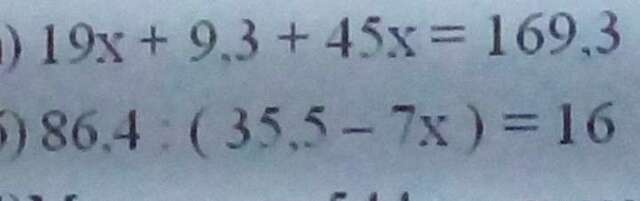 ) 19x + 9,3 + 45x = 169,3
б) 86,4 : ( 35,5 – 7x ) = 16